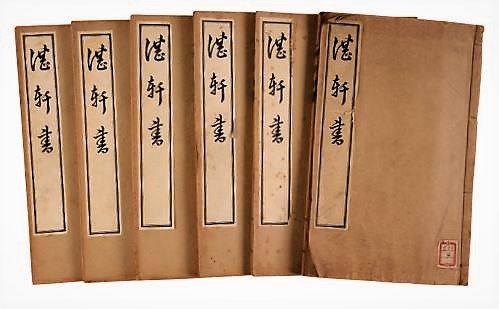 湛軒書
湛軒書
湛軒書
湛軒書
湛軒書
湛軒書